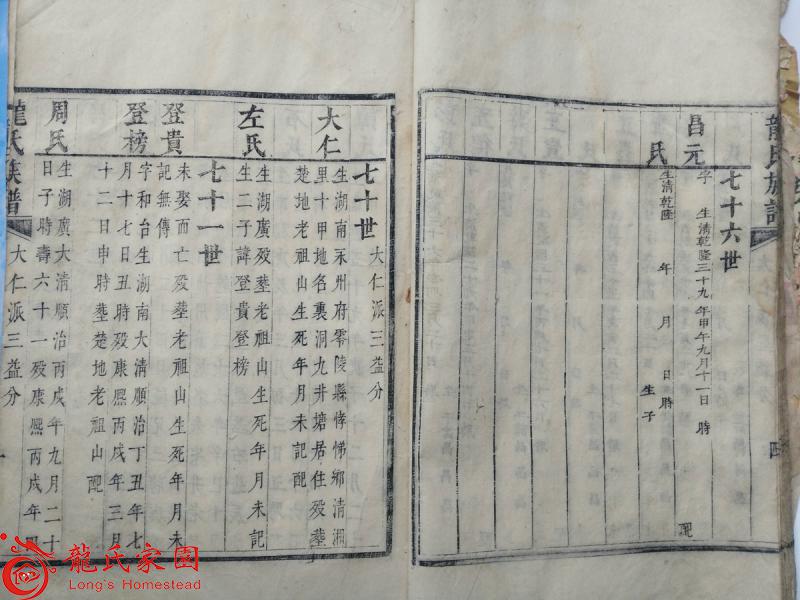 龍氏族譜
七十六世
昌元
字 生清乾隆三十九年甲午九月十一日 時
配
氏
生清乾隆 年 月 日 時 生子
七十世 大仁派三益分
大仁
生湖南永州府零陵縣孝悌鄉清湘
里十甲地名裏洞九井塘居住殁塟
楚地老祖山生死年月未記配
左氏
生湖廣殁塟老祖山生死年月未記
生二子諱登貴登榜
七十一世
登貴
未娶而亡殁塟老祖山生死年月未
記無傳
登榜
字和台生湖南大清順治丁丑年七
月十七日丑時殁康熙丙戌年三月
十二日申時塟楚地老祖山配
周氏
生湖廣大清順治丙戌年九月二十
日子時壽六十一殁康熙丙戌年四
龍氏族譜 大仁派三益分 一
龍氏家園
Long's Homestead